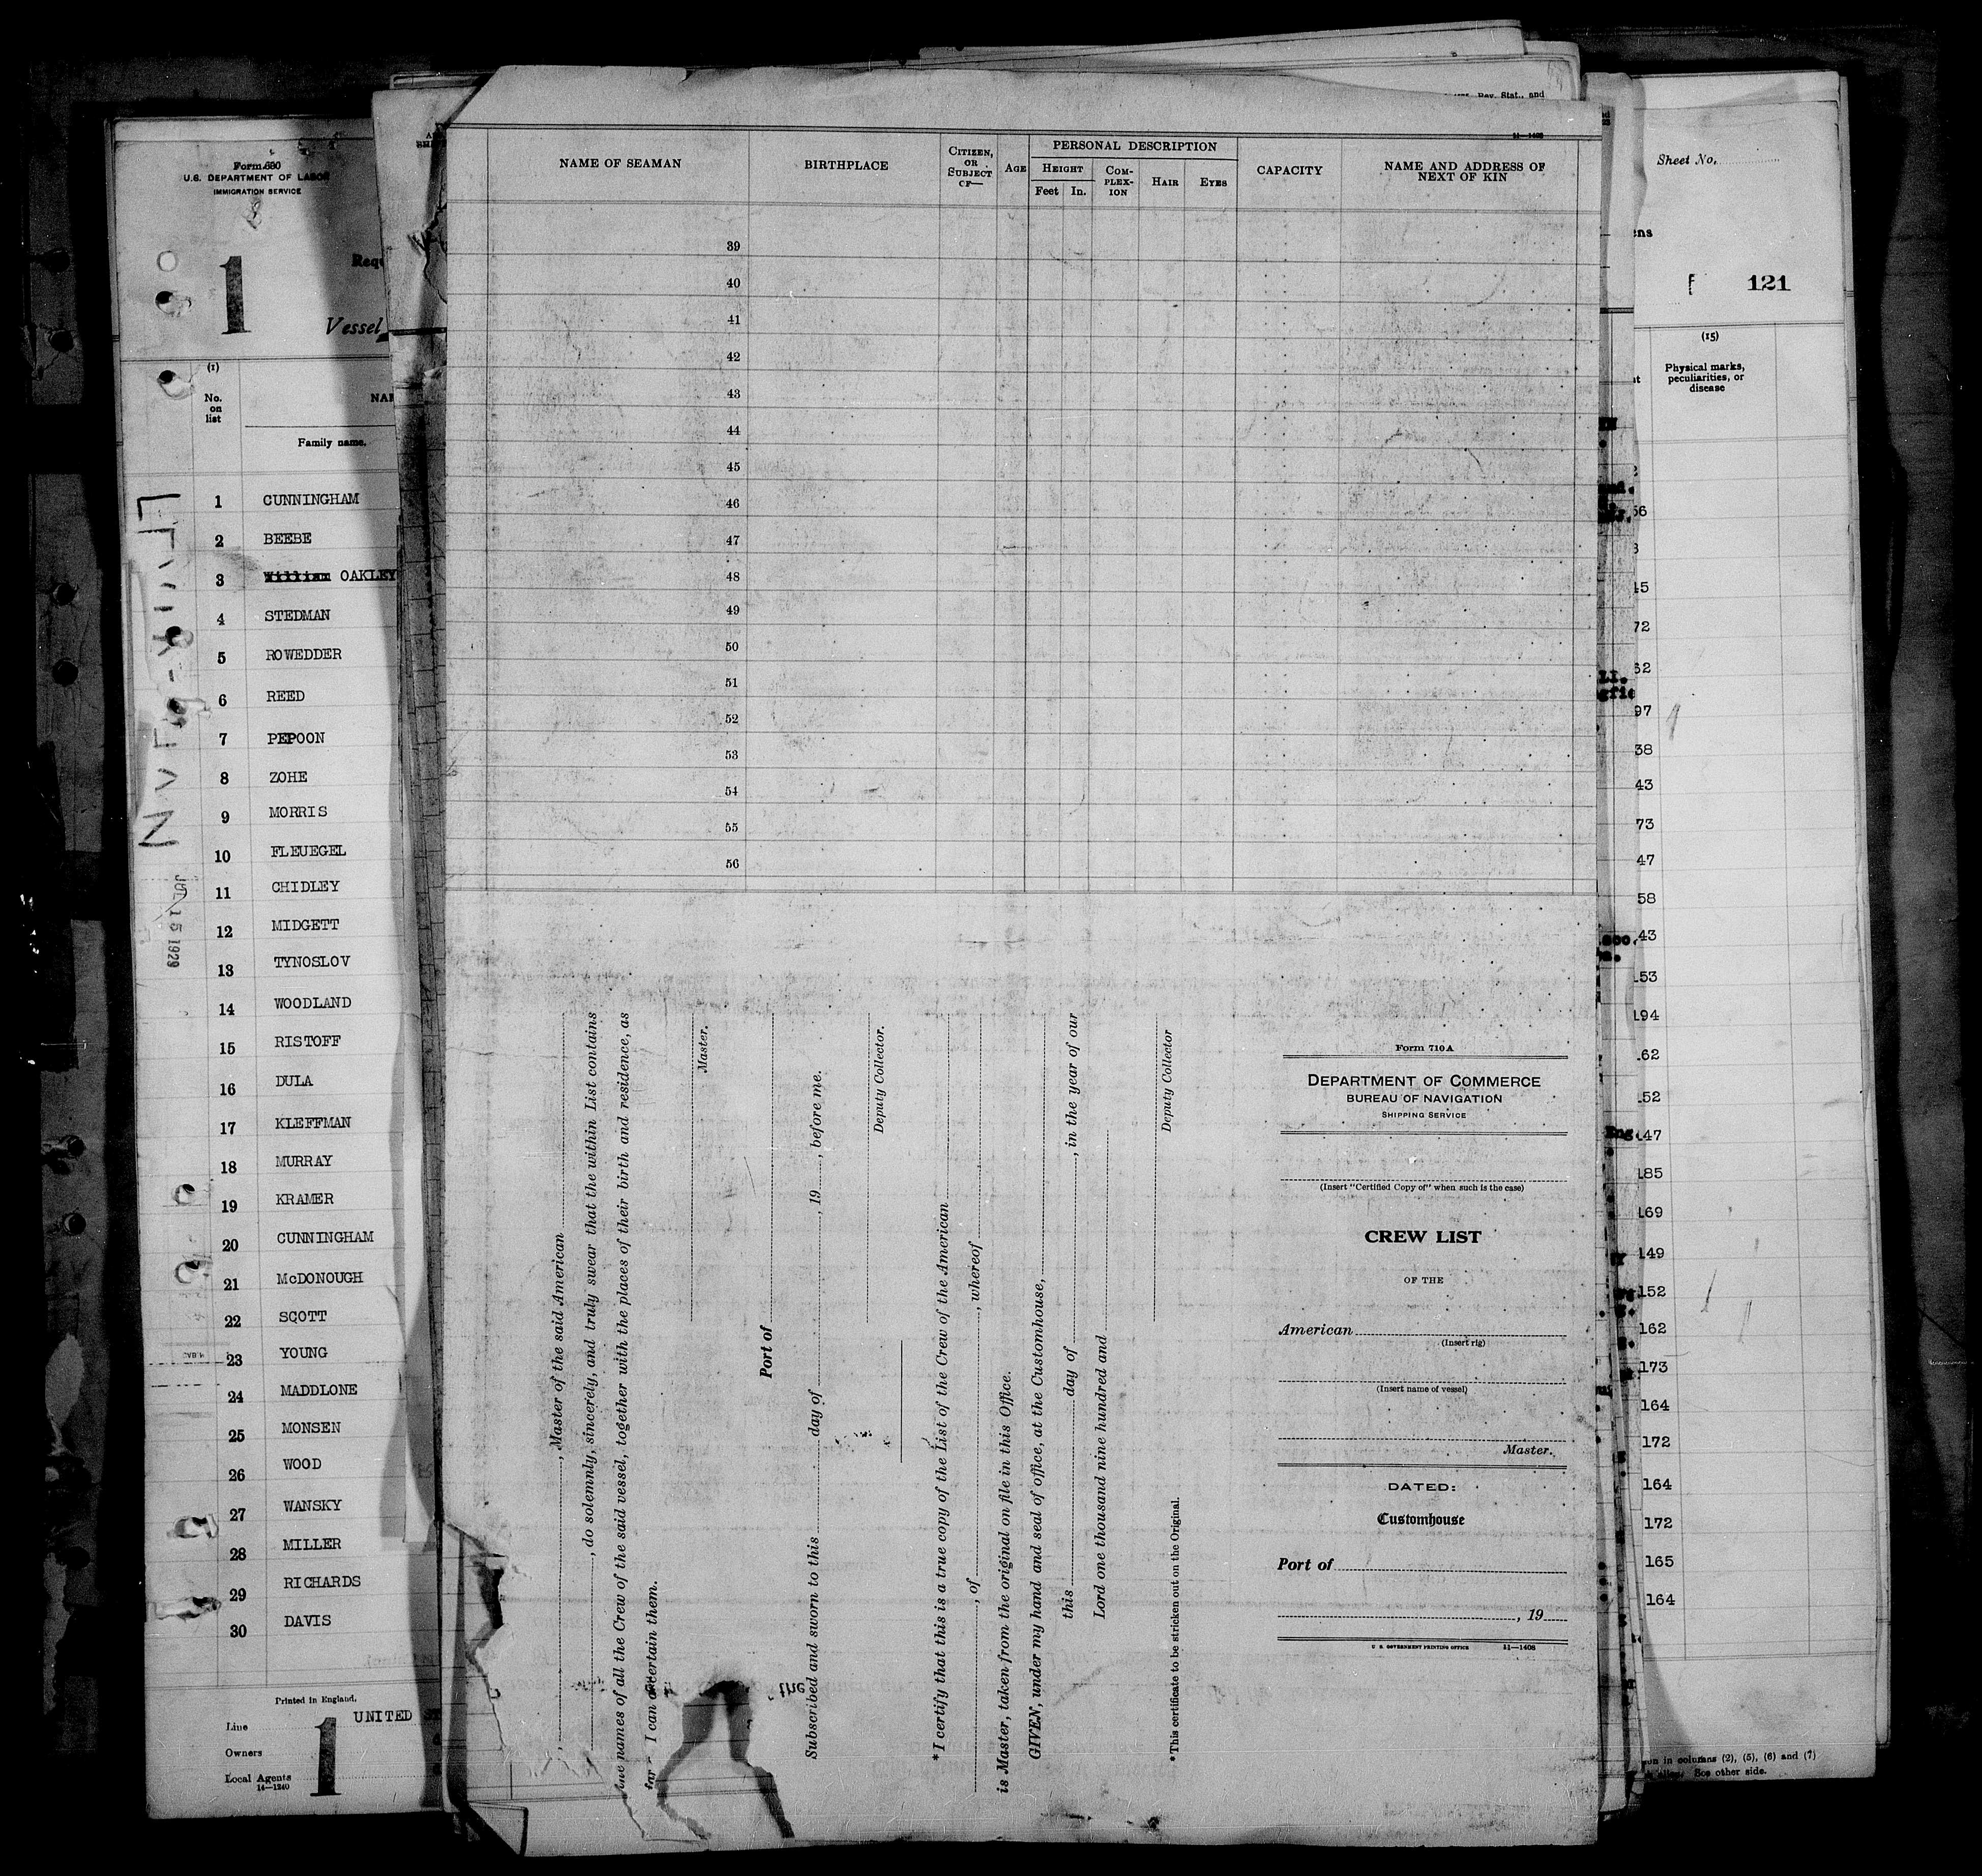 Form 680
U.S. DEPARTMENT OF LABOR
IMMIGRATION SERVICE
1
Vessel
(1)
No.
on
list
Family name.
1 CUNNINGHAM
2 BEEBE
3 William OAKLEY
4 STEDMAN
5 ROWEDDER
6 REED
7 PEPOON
8 ZOHE
9 MORRIS
10 FLEUEGEL
11 CHIDLEY
12 MIDGETT
13 TYNOSLOV
14 WOODLAND
15 RISTOFF
16 DULA
17 KLEFFMAN
18 MURRAY
19 KRAMER
20 CUNNINGHAM
21 McDONOUGH
22 SCOTT
23 YOUNG
24 MADDLONE
25 MONSEN
26 WOOD
27 WANSKY
28 MILLER
29 RICHARDS
30 DAVIS
JUL 15 1929
Printed in England.
Line UNITED
Owners
Local Agents
14—1240
1
Rev. Stat., and
11—1408
NAME OF SEAMAN
BIRTHPLACE
CITIZEN, OR SUBJECT OF—
AGE
PERSONAL DESCRIPTION
HEIGHT
Feet In.
COM-PLEX-ION
HAIR
EYES
CAPACITY
NAME AND ADDRESS OF NEXT OF KIN
39
40
41
42
43
44
45
46
47
48
49
50
51
52
53
54
55
56
, Master of the said American
, do solemnly, sincerely, and truly swear that the within List contains
the names of all the Crew of the said vessel, together with the places of their birth and residence, as
far I can ascertain them.
Master.
Port of
Subscribed and sworn to this day of , 19 , before me.
Deputy Collector.
*I certify that this is a true copy of the List of the Crew of the American
, of , whereof
is Master, taken from the original on file in this Office.
GIVEN, under my hand and seal of office, at the Customhouse,
this day of , in the year of our
Lord one thousand nine hundred and
Deputy Collector
*This certificate to be stricken out on the Original.
the
Form 710A
DEPARTMENT OF COMMERCE
BUREAU OF NAVIGATION
SHIPPING SERVICE
(Insert "Certified Copy of" when such is the case)
CREW LIST
OF THE
American
(Insert rig)
(Insert name of vessel)
Master.
DATED:
Customhouse
Port of
, 19
U. S. GOVERNMENT PRINTING OFFICE 11—1408
Sheet No.
121
(15)
Physical marks,
peculiarities, or
disease
56
45
72
62
97
38
43
73
47
58
43
53
194
62
52
147
185
169
149
152
162
173
164
172
164
172
165
164
in columns (2), (5), (6) and (7)
See other side.